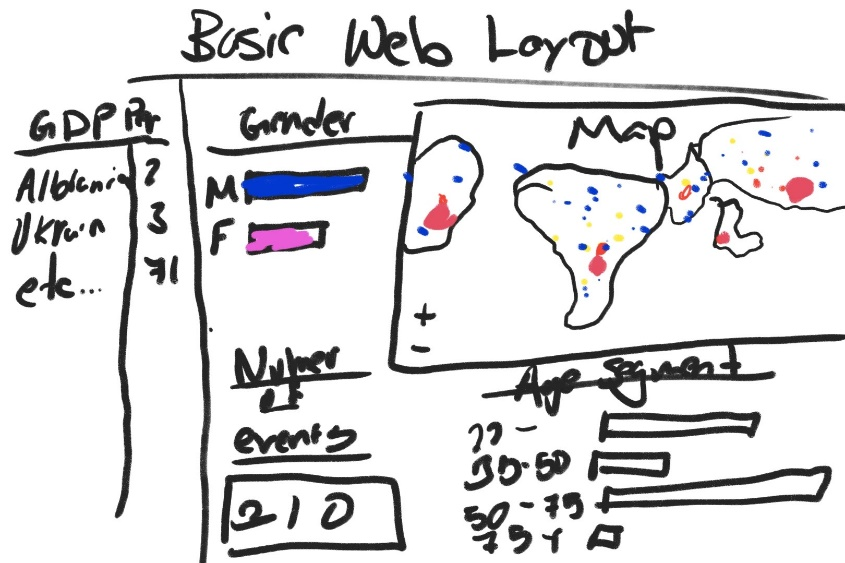 Basic Web Layout
GDP Pr
Albania 2
Ukrain 3
etc... 71
Gender
M
F
Map
+
-
Numer
of
events
210
Age segment
35-50
50-75
75+